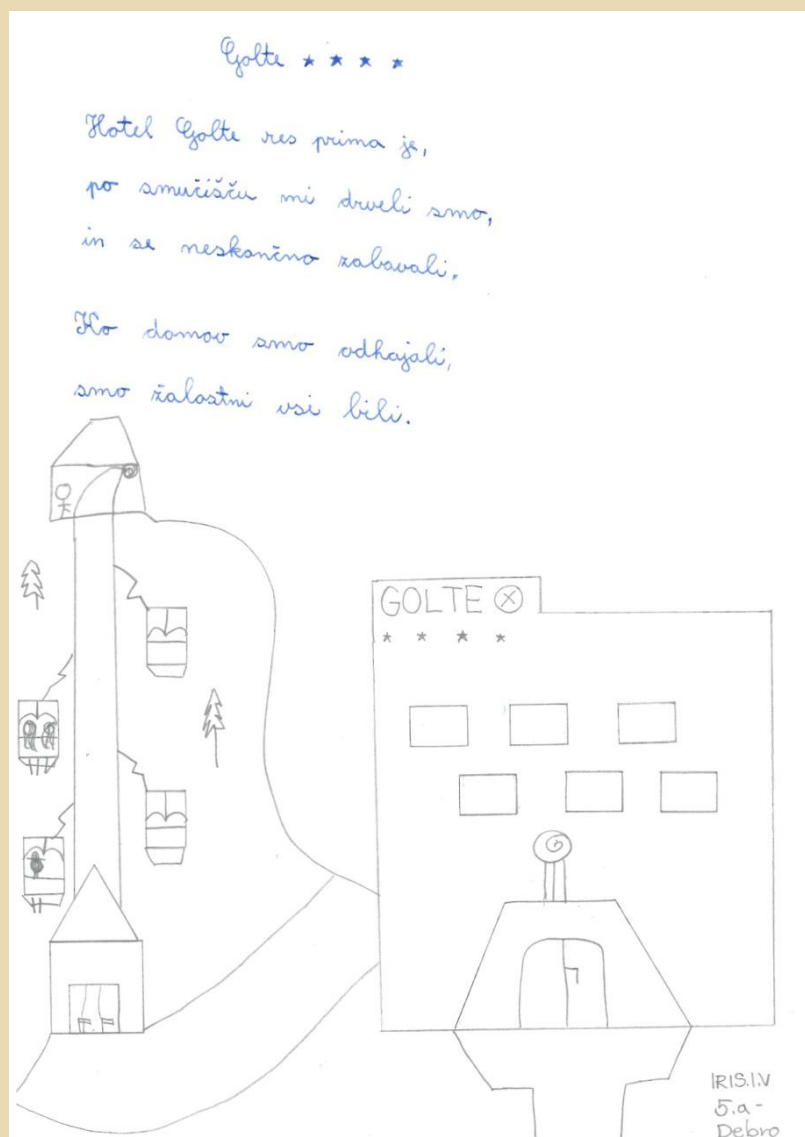 Golte ★ ★ ★ ★
Hotel Golte res prima je,
po smučišču mi drveli smo,
in se neskončno zabavali.
Ko domov smo odhajali,
smo žalostni vsi bili.
GOLTE
★ ★ ★ ★
IRIS.I.V
5.a-
Debro